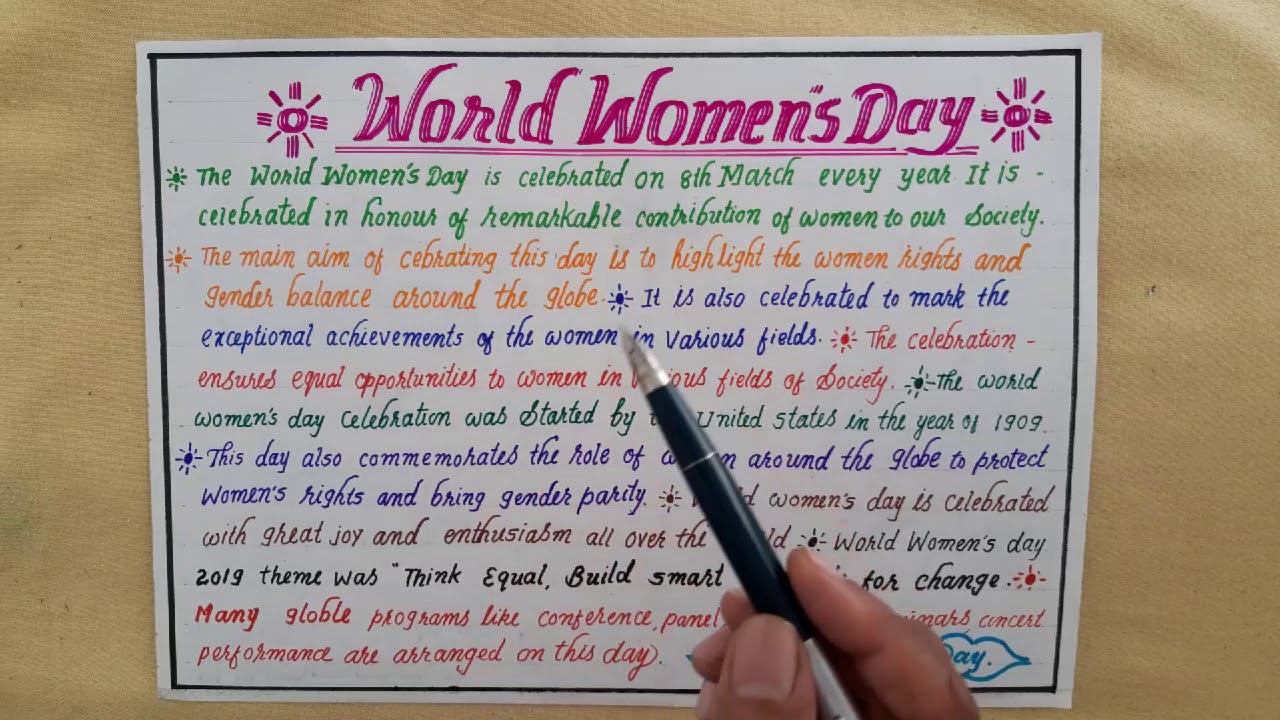 World Women's Day
The World Women's Day is celebrated on 8th March every year It is -
celebrated in honour of remarkable contribution of women to our Society.
The main aim of cebrating this day is to highlight the women rights and
gender balance around the globe. It is also celebrated to mark the
exceptional achievements of the women in various fields. The celebration -
ensures equal opportunities to women in fields of Society. The world
women's day celebration was started by United States in the year of 1909.
This day also commemorates the role of around the globe to protect
women's rights and bring gender parity. women's day is celebrated
with great joy and enthusiasm all over the World Women's day
2019 theme was "Think Equal, Build smart for change.
Many globle programs like conference, panel concert
performance are arranged on this day). Day.